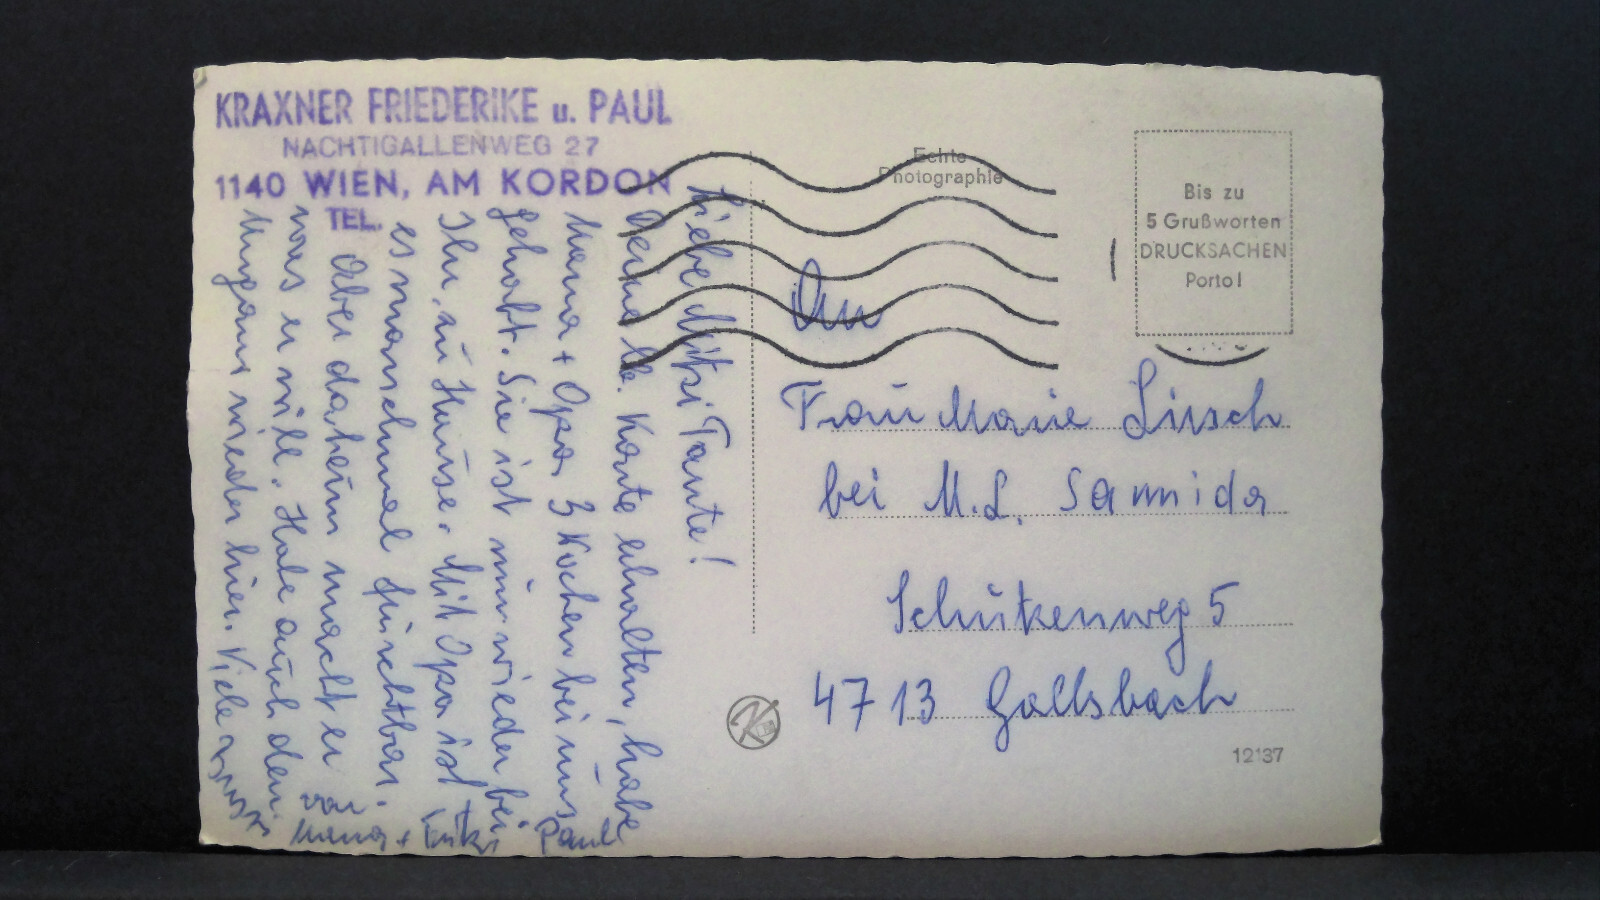 KRAXNER FRIEDERIKE u. PAUL
NACHTIGALLENWEG 27
1140 WIEN, AM KORDON
TEL.
Liebe Mitzi Tante!
Deine lb. Karte erhalten, habe
Mama + Opa 3 Wochen bei uns
gehabt. Sie ist nun wieder bei
Ihr, zu Hause. Mit Opa ist
es manchmal furchtbar.
Aber daheim macht er
was er will. Habe auch den
wieder hier. Viele
von
Mama + Fritzi Paul
Echte
Photographie
Bis zu
5 Grußworten
DRUCKSACHEN
Porto!
An
Frau Marie Lirsch
bei M. L. Samida
Schützenweg 5
4713 Gallsbach
K
12137